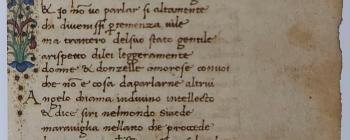 & io nō vo parlar si altamente
cħ divenissi p temenza vile
ma tractero delsuo stato gentile
arispetto dilei leggeramente
donne & donzelle amorose convoi
che nō e cosa daparlarne altrui
Angelo chiama indivino intellecto
& dice siri nelmondo sivede
maraviglia nellatto che procede